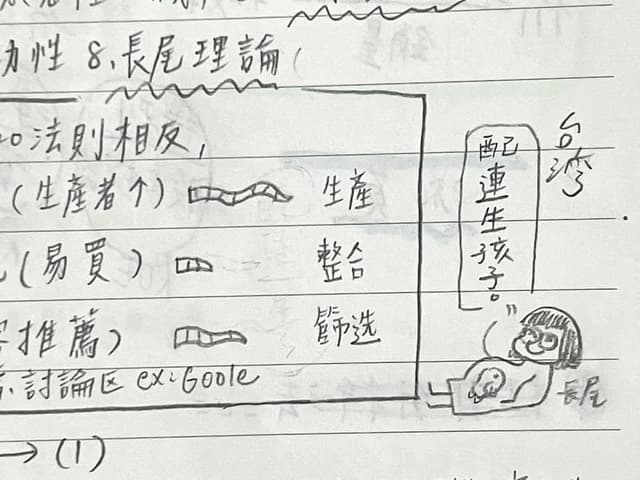 性 8、長尾理論(
法則相反,
(生產者个) 生產
(易買) 整合
推薦) 篩选
討論区 ex:Goole
→(1)
台灣
配連生孩子。
長尾